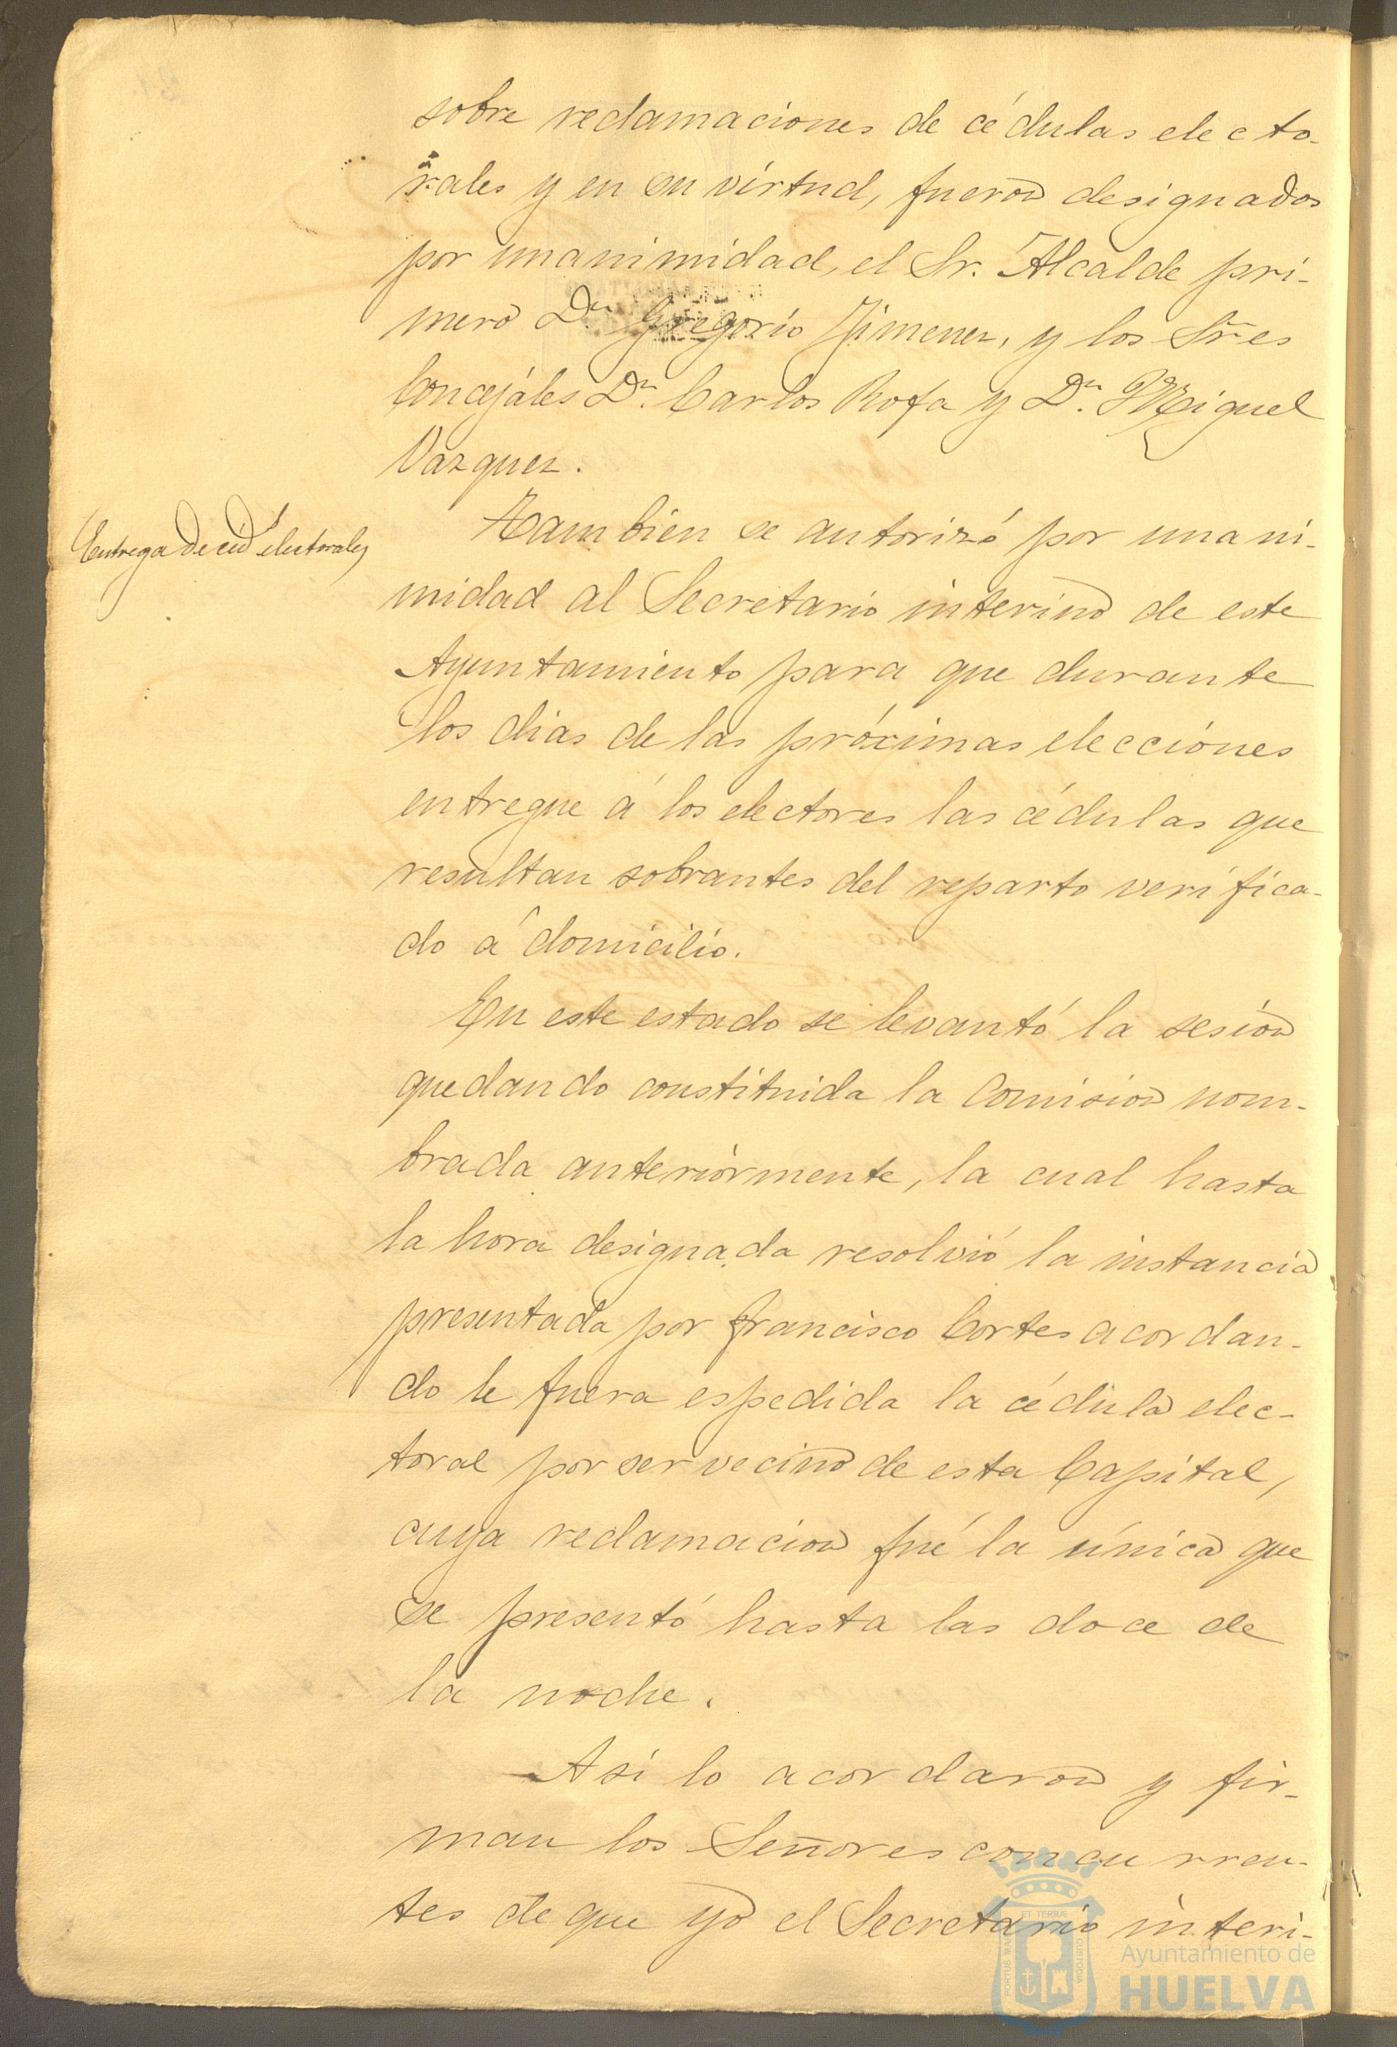 sobre reclamaciones de cédulas electo-
rales y en su virtud, fueron designados
por unanimidad, el Sr. Alcalde pri-
mero Dn. Gregorio Jimenez, y los Sres
Concejáles Dn. Carlos Rofa y Dn. Miguel
Vazquez.
Entrega de céd electorales
Tambien se autorizó por unani-
midad al Secretario interino de este
Ayuntamiento para que durante
los dias de las próximas elecciónes
entregue á los electores las cédulas que
resultan sobrantes del reparto verifica-
do á domicilio.
En este estado se levantó la sesión
quedando constituida la Comision nom-
brada anteriórmente, la cual hasta
la hora designada resolvió la instancia
presentada por Francisco Cortes acordan-
do le fuera espedida la cédula elec-
toral por ser vecino de esta Capital,
cuya reclamacion fué la única que
se presentó hasta las doce de
la noche.
Asi lo acordaron y fir-
man los Señores concurren-
tes de que yo el Secretario interi-
PORTUS MARIS ET TERRAE CUSTODIA
Ayuntamiento de
HUELVA